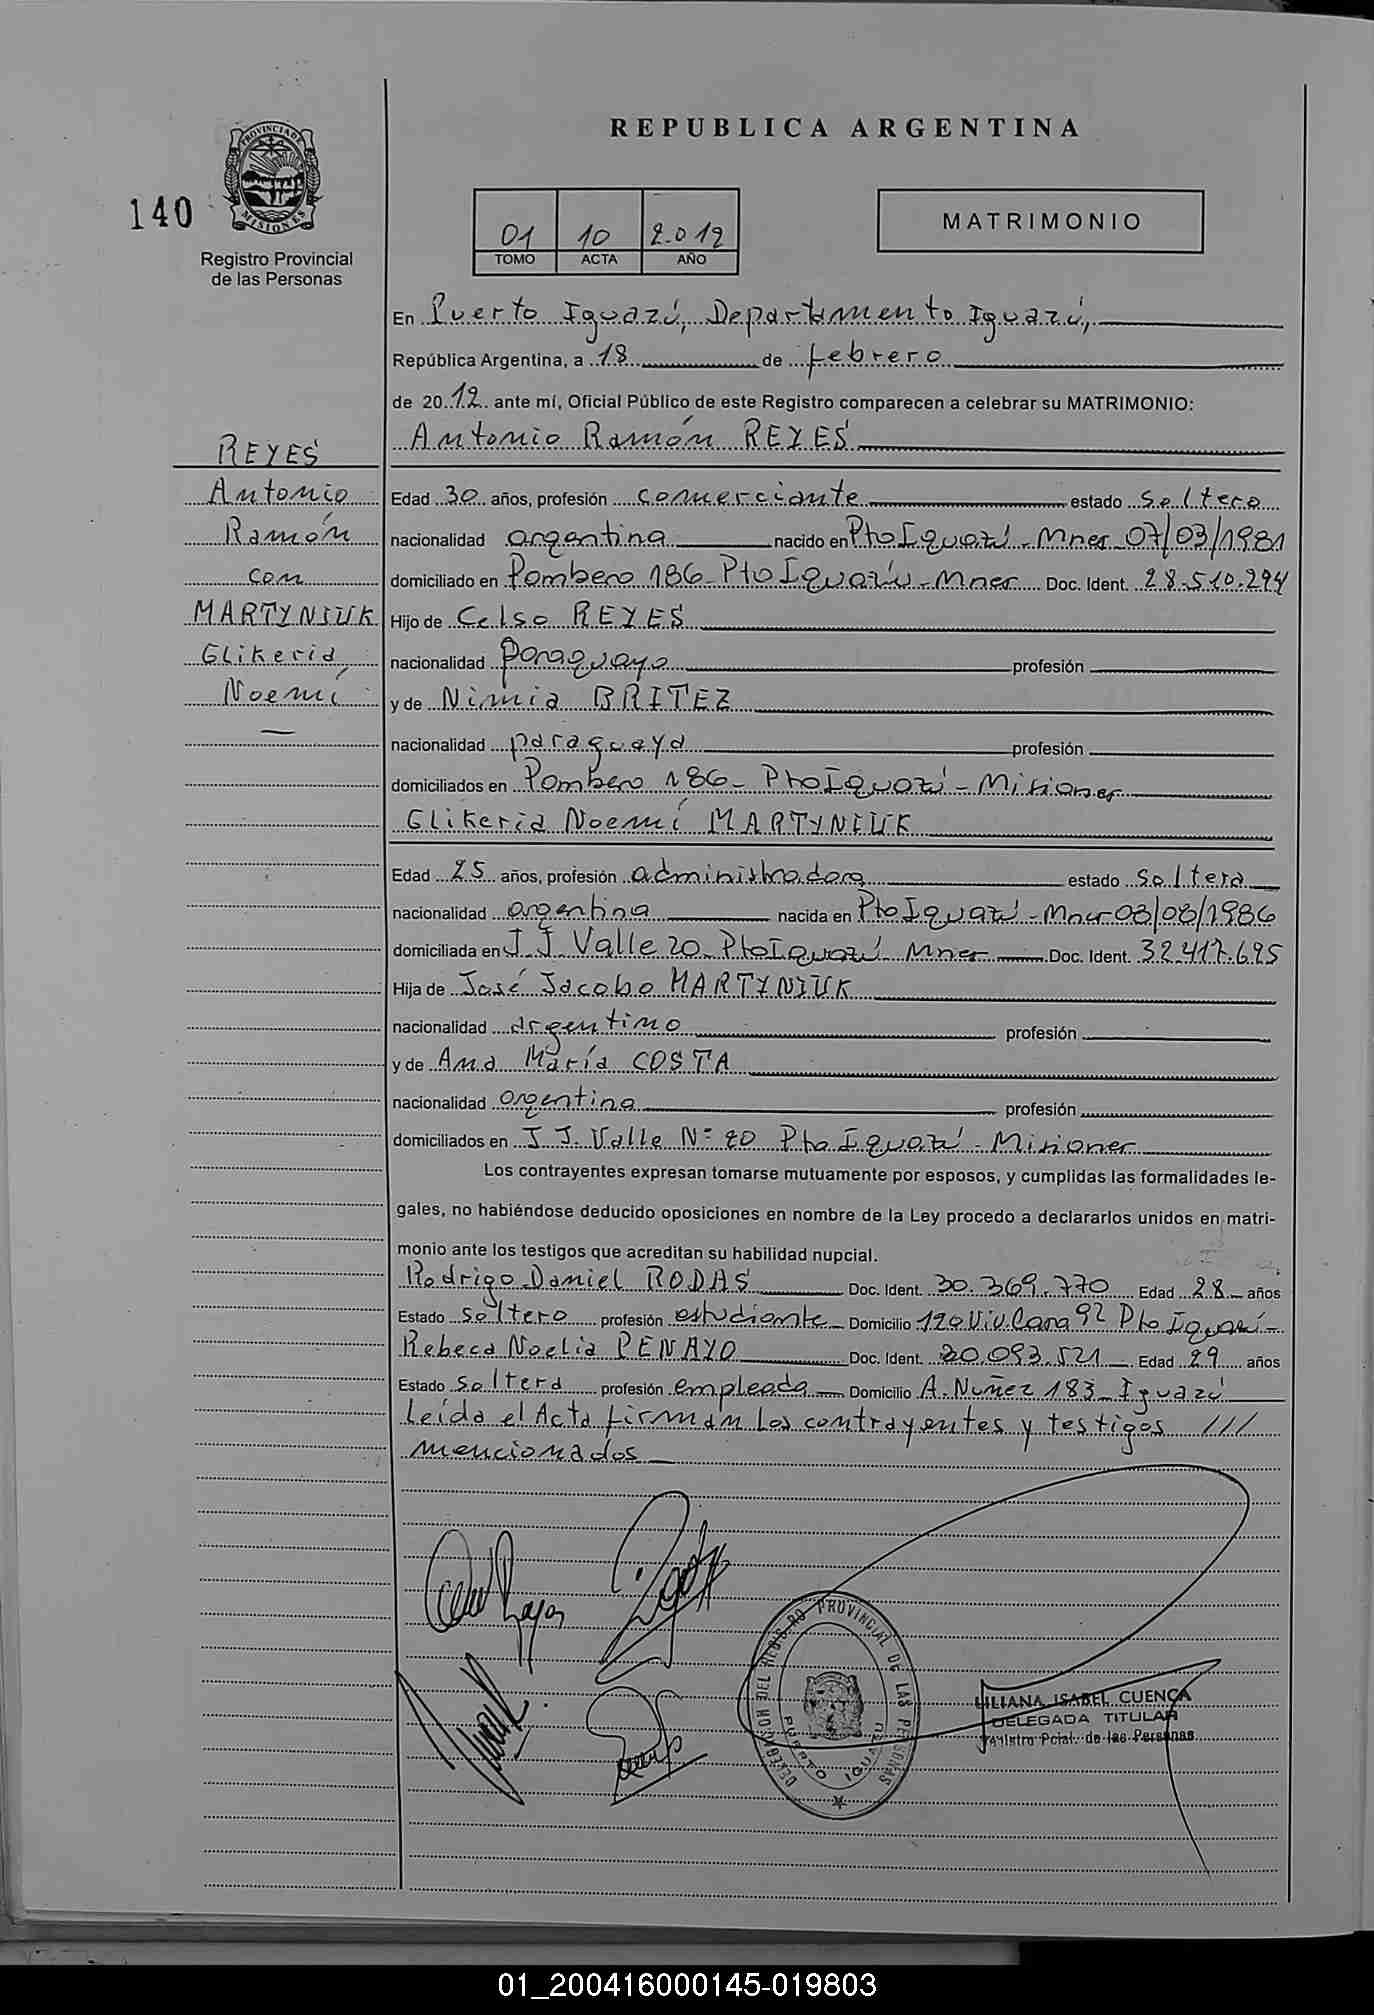 REPUBLICA ARGENTINA
PROVINCIA DE MISIONES
140
Registro Provincial
de las Personas
01 10 2.012
TOMO ACTA AÑO
MATRIMONIO
En Puerto Iguazú, Departamento Iguazú,
República Argentina, a 18 de febrero
de 2012 ante mí, Oficial Público de este Registro comparecen a celebrar su MATRIMONIO:
Antonio Ramón REYES
REYES
Antonio
Ramón
con
MARTYNIUK
Glikeria
Noemí
Edad 30 años, profesión comerciante estado soltero
nacionalidad argentina nacido en Pto Iguazú - Mnes 07/03/1981
domiciliado en Pombero 186 - Pto Iguazú - Mnes Doc. Ident. 28.510.294
Hijo de Celso REYES
nacionalidad paraguayo profesión
y de Nimia BRITEZ
nacionalidad paraguaya profesión
domiciliados en Pombero 186 - Pto Iguazú - Misiones
Glikeria Noemí MARTYNIUK
Edad 25 años, profesión administradora estado soltera
nacionalidad argentina nacida en Pto Iguazú - Mnes 08/08/1986
domiciliada en J. J. Valle 20 Pto Iguazú Mnes Doc. Ident. 32.417.695
Hija de José Jacobo MARTYNIUK
nacionalidad argentino profesión
y de Ana María COSTA
nacionalidad argentina profesión
domiciliados en J J. Valle Nº 20 Pto Iguazú - Misiones
Los contrayentes expresan tomarse mutuamente por esposos, y cumplidas las formalidades le-
gales, no habiéndose deducido oposiciones en nombre de la Ley procedo a declararlos unidos en matri-
monio ante los testigos que acreditan su habilidad nupcial.
Rodrigo Daniel RODAS Doc. Ident. 30.369.770 Edad 28 años
Estado soltero profesión estudiante Domicilio 120 Viv. Casa 92 Pto Iguazú -
Rebeca Noelia PENAYO Doc. Ident. 30.093.521 Edad 29 años
Estado soltera profesión empleada Domicilio A. Nuñez 183 - Iguazú
Leída el Acta firman los contrayentes y testigos ///
mencionados
DELEGACION DEL REGISTRO PROVINCIAL DE LAS PERSONAS
PUERTO IGUAZU
LILIANA ISABEL CUENCA
DELEGADA TITULAR
Registro Pcial. de las Personas
01_200416000145-019803